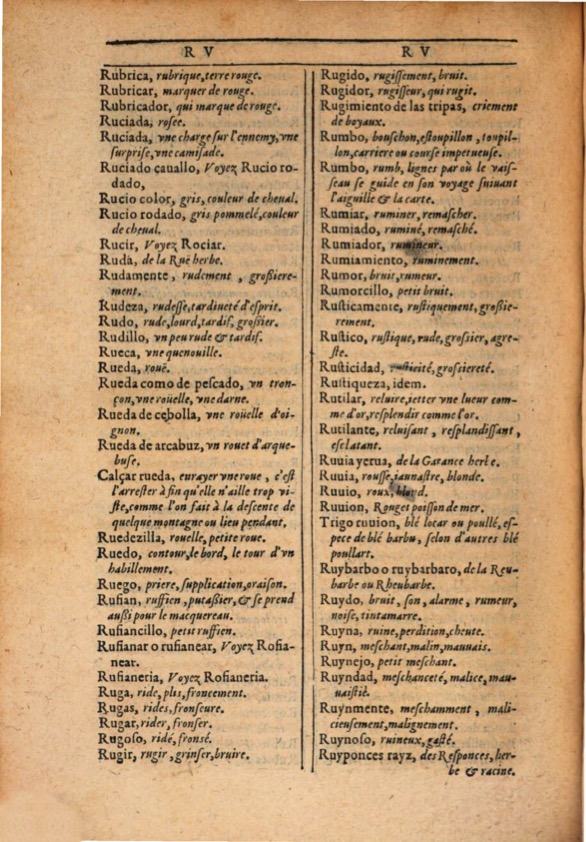 R V
Rubrica, rubrique, terre rouge.
Rubricar, marquer de rouge.
Rubricador, qui marque de rouge.
Ruciada, rosee.
Ruciada, vne charge sur l'ennemy, vne
surprise, vne camisade.
Ruciado cauallo, Voyez Rucio ro-
dado,
Rucio color, gris, couleur de cheual.
Rucio rodado, gris pommelé, couleur
de cheual.
Rucir, Voyez Rociar.
Ruda, de la Ruë herbe.
Rudamente, rudement, großiere-
ment.
Rudeza, rudesse, tardiueté d'esprit.
Rudo, rude, lourd, tardif, grossier.
Rudillo, vn peu rude & tardif.
Rueca, vne quenouille.
Rueda, rouë.
Rueda como de pescado, vn tron-
çon, vne roüelle, vne darne.
Rueda de cebolla, vne roüelle d'oi-
gnon.
Rueda de arcabuz, vn rouet d'arque-
buse.
Calçar rueda, enrayer vne roue, c'est
l'arrester à fin qu'elle n'aille trop vi-
ste, comme l'on fait à la descente de
quelque montagne ou lieu pendant.
Ruedezilla, rouelle, petite roue.
Ruedo, contour, le bord, le tour d'vn
habillement.
Ruego, priere, supplication, oraison.
Rufian, ruffien, putaßier, & se prend
außi pour le macquereau.
Rufiancillo, petit ruffien.
Rufianar o rufianear, Voyez Rofia-
near.
Rufianeria, Voyez Rofianeria.
Ruga, ride, plis, froncement.
Rugas, rides, fronseure.
Rugar, rider, fronser.
Rugoso, ridé, fronsé.
Rugir, rugir, grinser, bruire.
R V
Rugido, rugissement, bruit.
Rugidor, rugisseur, qui rugit.
Rugimiento de las tripas, criement
de boyaux.
Rumbo, bouschon, estoupillon, toupil-
lon, carriere ou course impetueuse.
Rumbo, rumb, lignes par où le vais-
seau se guide en son voyage suiuant
l'aiguille & la carte.
Rumiar, ruminer, remascher.
Rumiado, ruminé, remasché.
Rumiador, rumineur.
Rumiamiento, ruminement.
Rumor, bruit, rumeur.
Rumorcillo, petit bruit.
Rusticamente, rustiquement, großie-
rement.
Rustico, rustique, rude, grossier, agre-
ste.
Rusticidad, rusticité, grossiereté.
Rustiqueza, idem.
Rutilar, reluire, ietter vne lueur com-
me d'or, resplendir comme l'or.
Rutilante, reluisant, resplandissant,
esclatant.
Ruuia yerua, de la Garance herbe.
Ruuia, rousse, iaunastre, blonde.
Ruuio, roux, blond.
Ruuion, Rouget poisson de mer.
Trigo ruuion, blé locar ou poullé, es-
pece de blé barbu, selon d'autres blé
poullart.
Ruybarbo o ruybarbaro, de la Reu-
barbe ou Rheubarbe.
Ruydo, bruit, son, alarme, rumeur,
noise, tintamarre.
Ruyna, ruine, perdition, cheute.
Ruyn, meschant, malin, mauuais.
Ruynejo, petit meschant.
Ruyndad, meschanceté, malice, mau-
uaistié.
Ruynmente, meschamment, mali-
cieusement, malignement.
Ruynoso, ruineux, gasté.
Ruyponces rayz, des Responces, her-
be & racine.